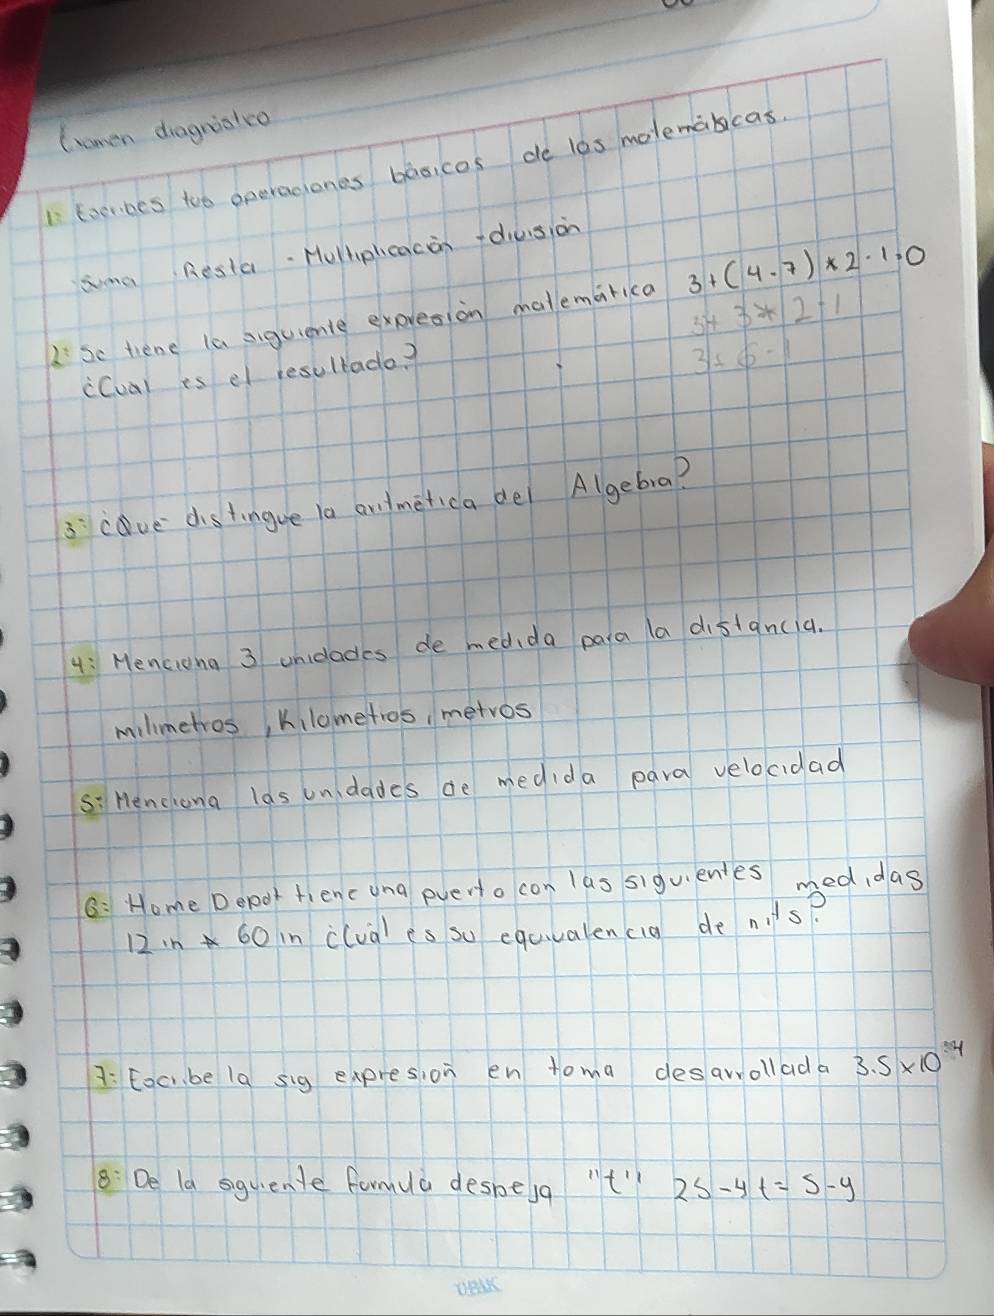 Examen diagnóstico
1: Escribes tus operaciones básicas de las matemáticas.
Suma - Resta - Multiplicación - división
2: Se tiene la siguiente expresión matemática 3+(4-7)*2-1.0
3+ 3*2-1
¿Cual es el resultado?
3+6-1
3: ¿Qué distingue la aritmética del Algebra?
4: Menciona 3 unidades de medida para la distancia.
milimetros, Kilometros, metros
5: Menciona las unidades de medida para velocidad
6: Home Depot tiene una puerta con las siguientes medidas
12 in * 60 in ¿Cuál es su equivalencia de mts?
7: Escribe la sig expresión en toma desarrollada 3.5x10⁻⁴
8: De la siguiente formula despeja "t" 2s-4t=5-y